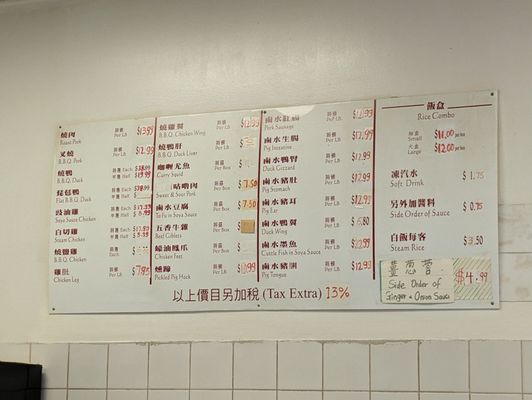 燒肉 每磅 Per LB $13.99
Roast Pork
叉燒 每磅 Per LB $12.99
B.B.Q. Pork
燒鴨 每隻 Each
B.B.Q. Duck 半隻 Half
琵琶鴨 每隻 Each
Flat B.B.Q. Duck
豉油雞 每隻 Each
Soya Sauce Chicken 半隻 Half
白切雞 每隻 Each
Steam Chicken 半隻 Half
燒鹽雞 每隻 Each
B.B.Q. Chicken
雞肶 每磅 Per LB $7.95
Chicken Leg
燒雞翼 每磅 Per LB
B.B.Q. Chicken Wing
燒鴨肝 每磅 Per LB
B.B.Q. Duck Liver
咖喱尤魚 每盒 Per Box
Curry Squid
咕嚕肉 每盒 Per Box 7.50
Sweet & Sour Pork
鹵水豆腐 每盒 Per Box 7.50
To Fu in Soya Sauce
五香牛雜 每盒 Per Box
Beef Giblets
蠔油鳳爪 每盒 Per Box
Chicken Feet
燻蹄 每磅 Per LB
Pickled Pig Hock
每磅 Per LB
Pork Sausage
鹵水生腸 每磅 Per LB $12.99
Pig Intestine
鹵水鴨腎 每磅 Per LB $12.99
Duck Gizzard
鹵水豬肚 每磅 Per LB $12.99
Pig Stomach
鹵水豬耳 每磅 Per LB $12.99
Pig Ear
鹵水鴨翼 每磅 Per LB
Duck Wing
鹵水墨魚 每磅 Per LB
Cuttle Fish in Soya Sauce
鹵水豬脷 每磅 Per LB $12.99
Pig Tongue
飯盒
Rice Combo
細盒 Small $11.00
大盒 Large $12.00
凍汽水 $1.75
Soft Drink
另外加醬料 $0.75
Side Order of Sauce
白飯每客 $3.50
Steam Rice
薑葱蓉 $4.99
Side Order of
Ginger & Onion Sauce
以上價目另加稅 (Tax Extra) 13%